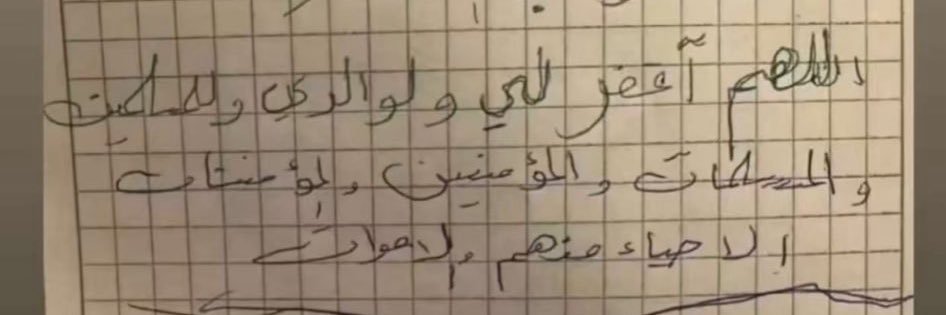 اللهم آغفر لي ولوالدي وللمسلمين
والمسلمات والمؤمنين والمؤمنات
الاحياء منهم والاموات